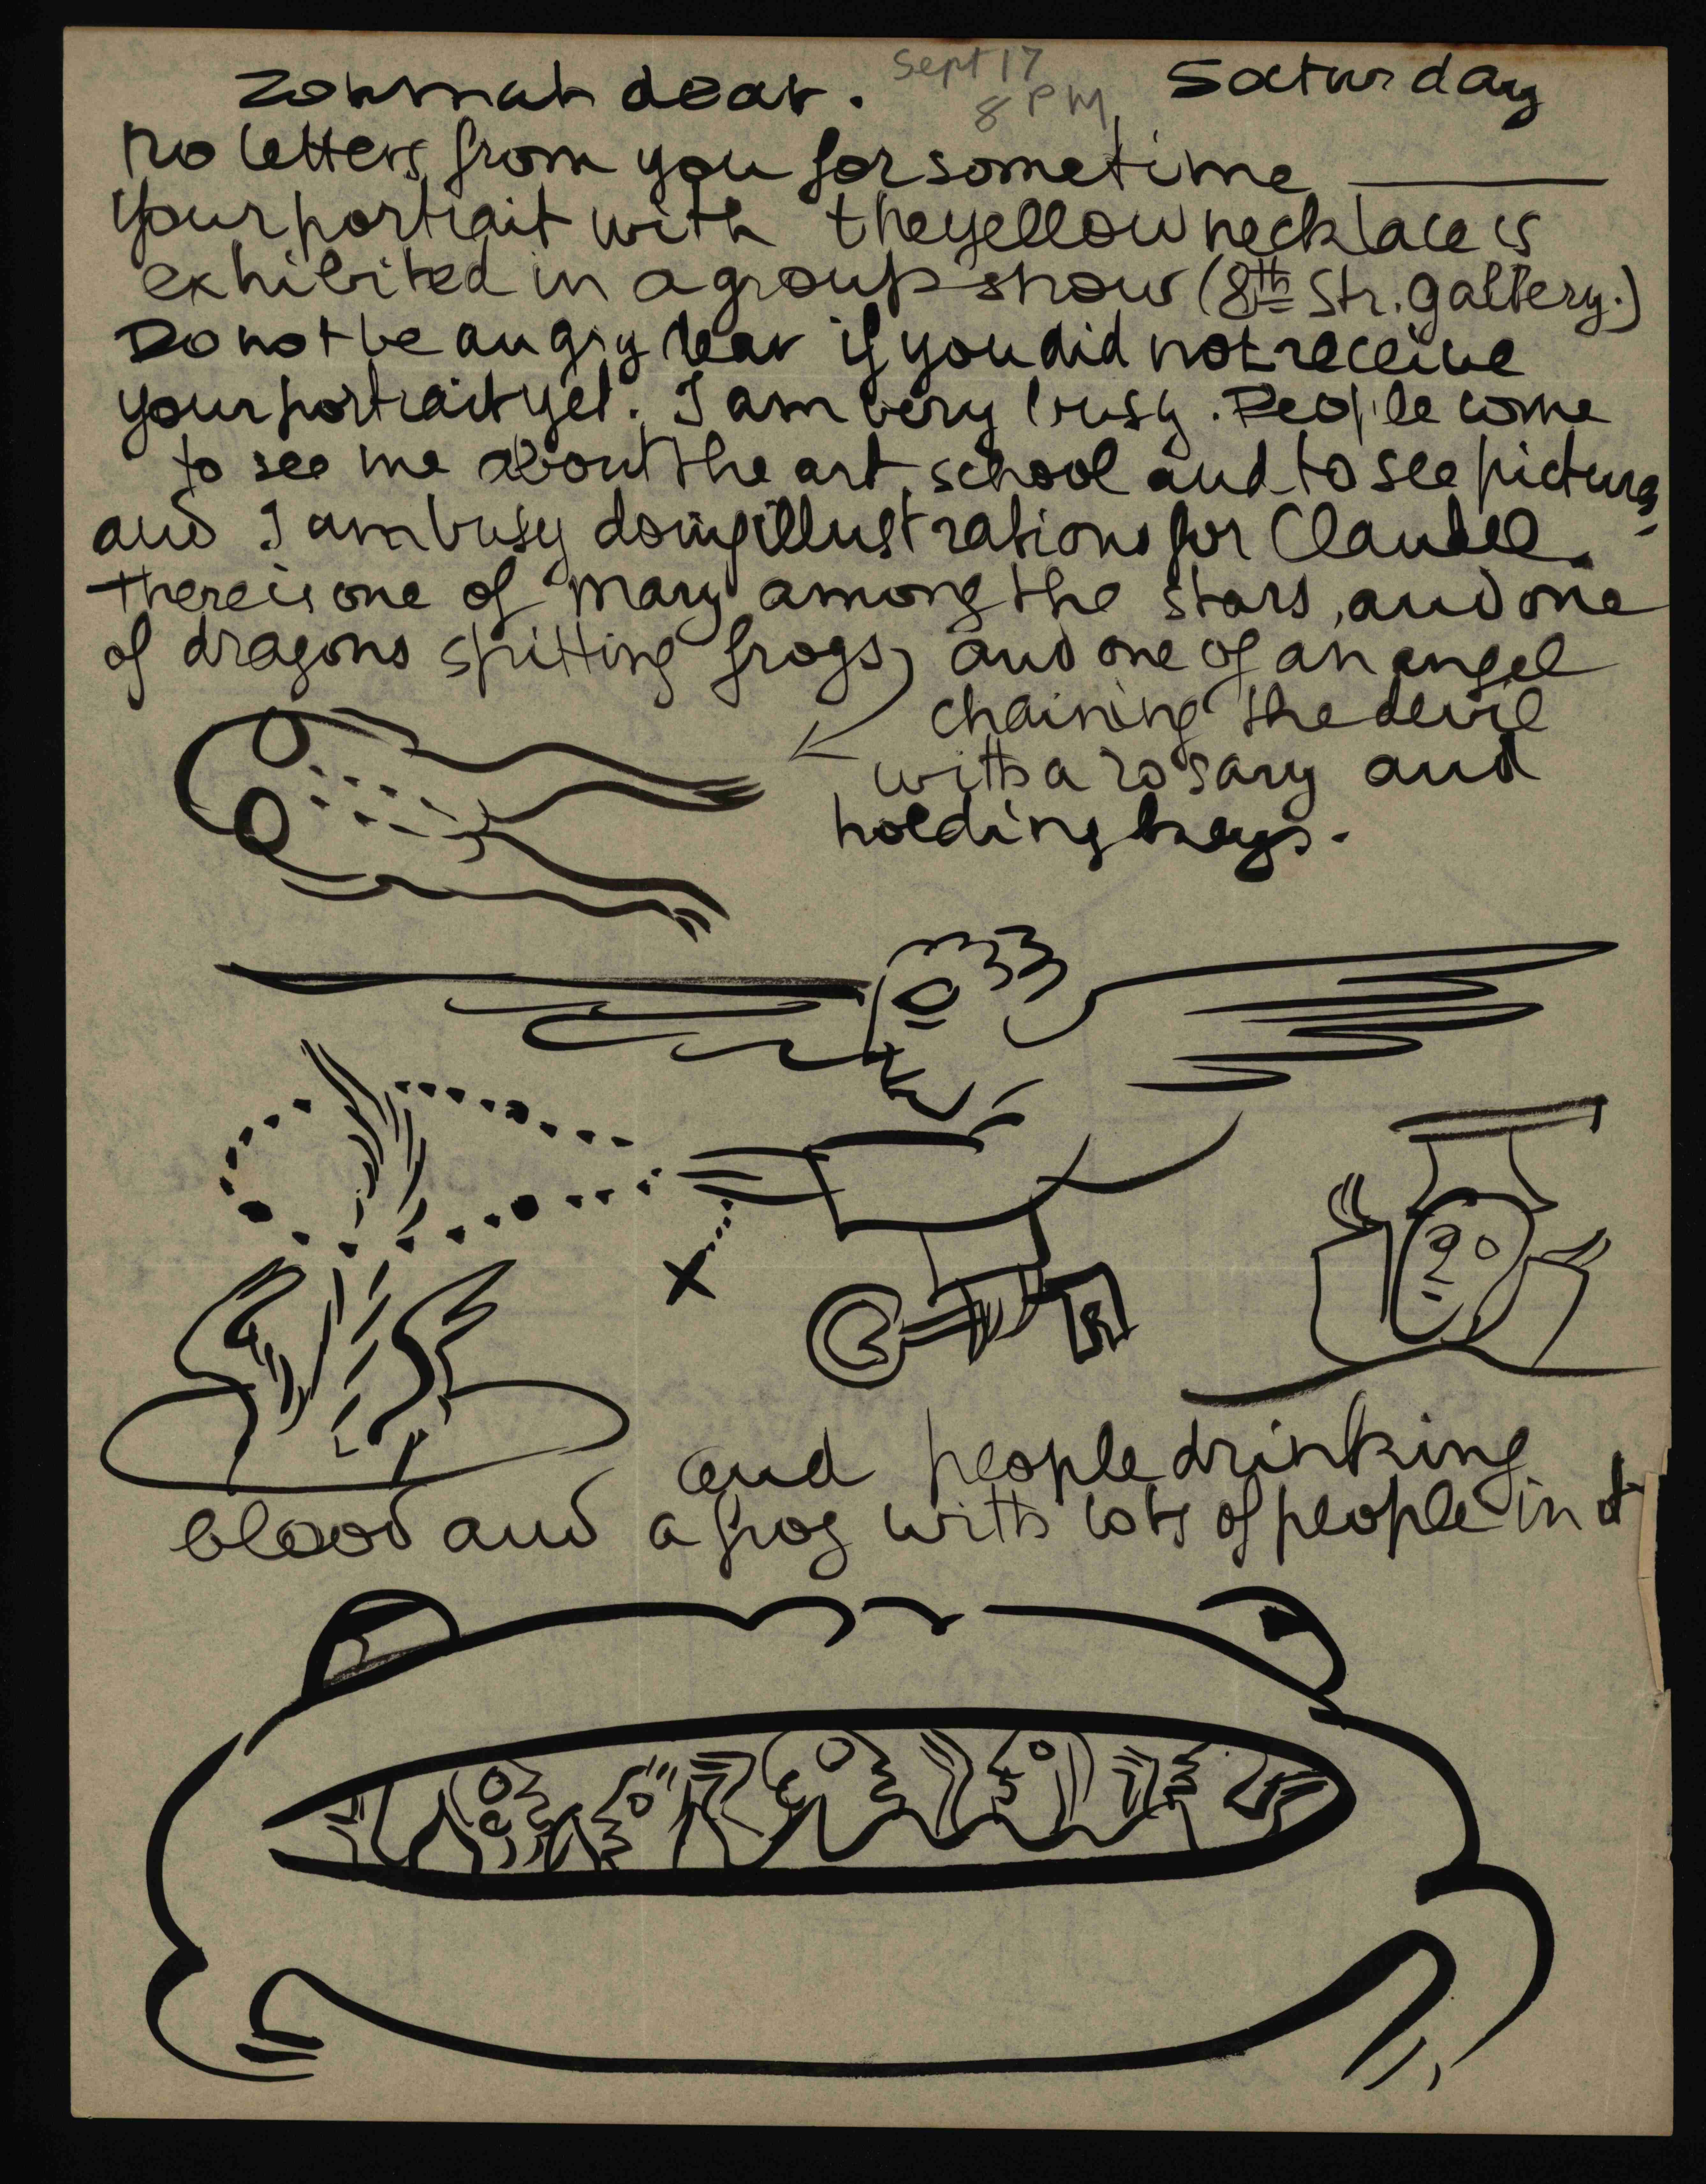 Zohmah dear. Sept 17 Saturday
8 PM
no letters from you for sometime ———
your portrait with the yellow necklace is
exhibited in a group show (8th Str. gallery.)
Do not be angry dear if you did not receive
your portrait yet. I am very busy. People come
to see me about the art school and to see pictures
and I am busy doing illustrations for Claudel.
there is one of Mary among the stars, and one
of dragons spitting frogs, and one of an angel
chaining the devil
with a rosary and
holding keys.
and people drinking
blood and a frog with lots of people in it